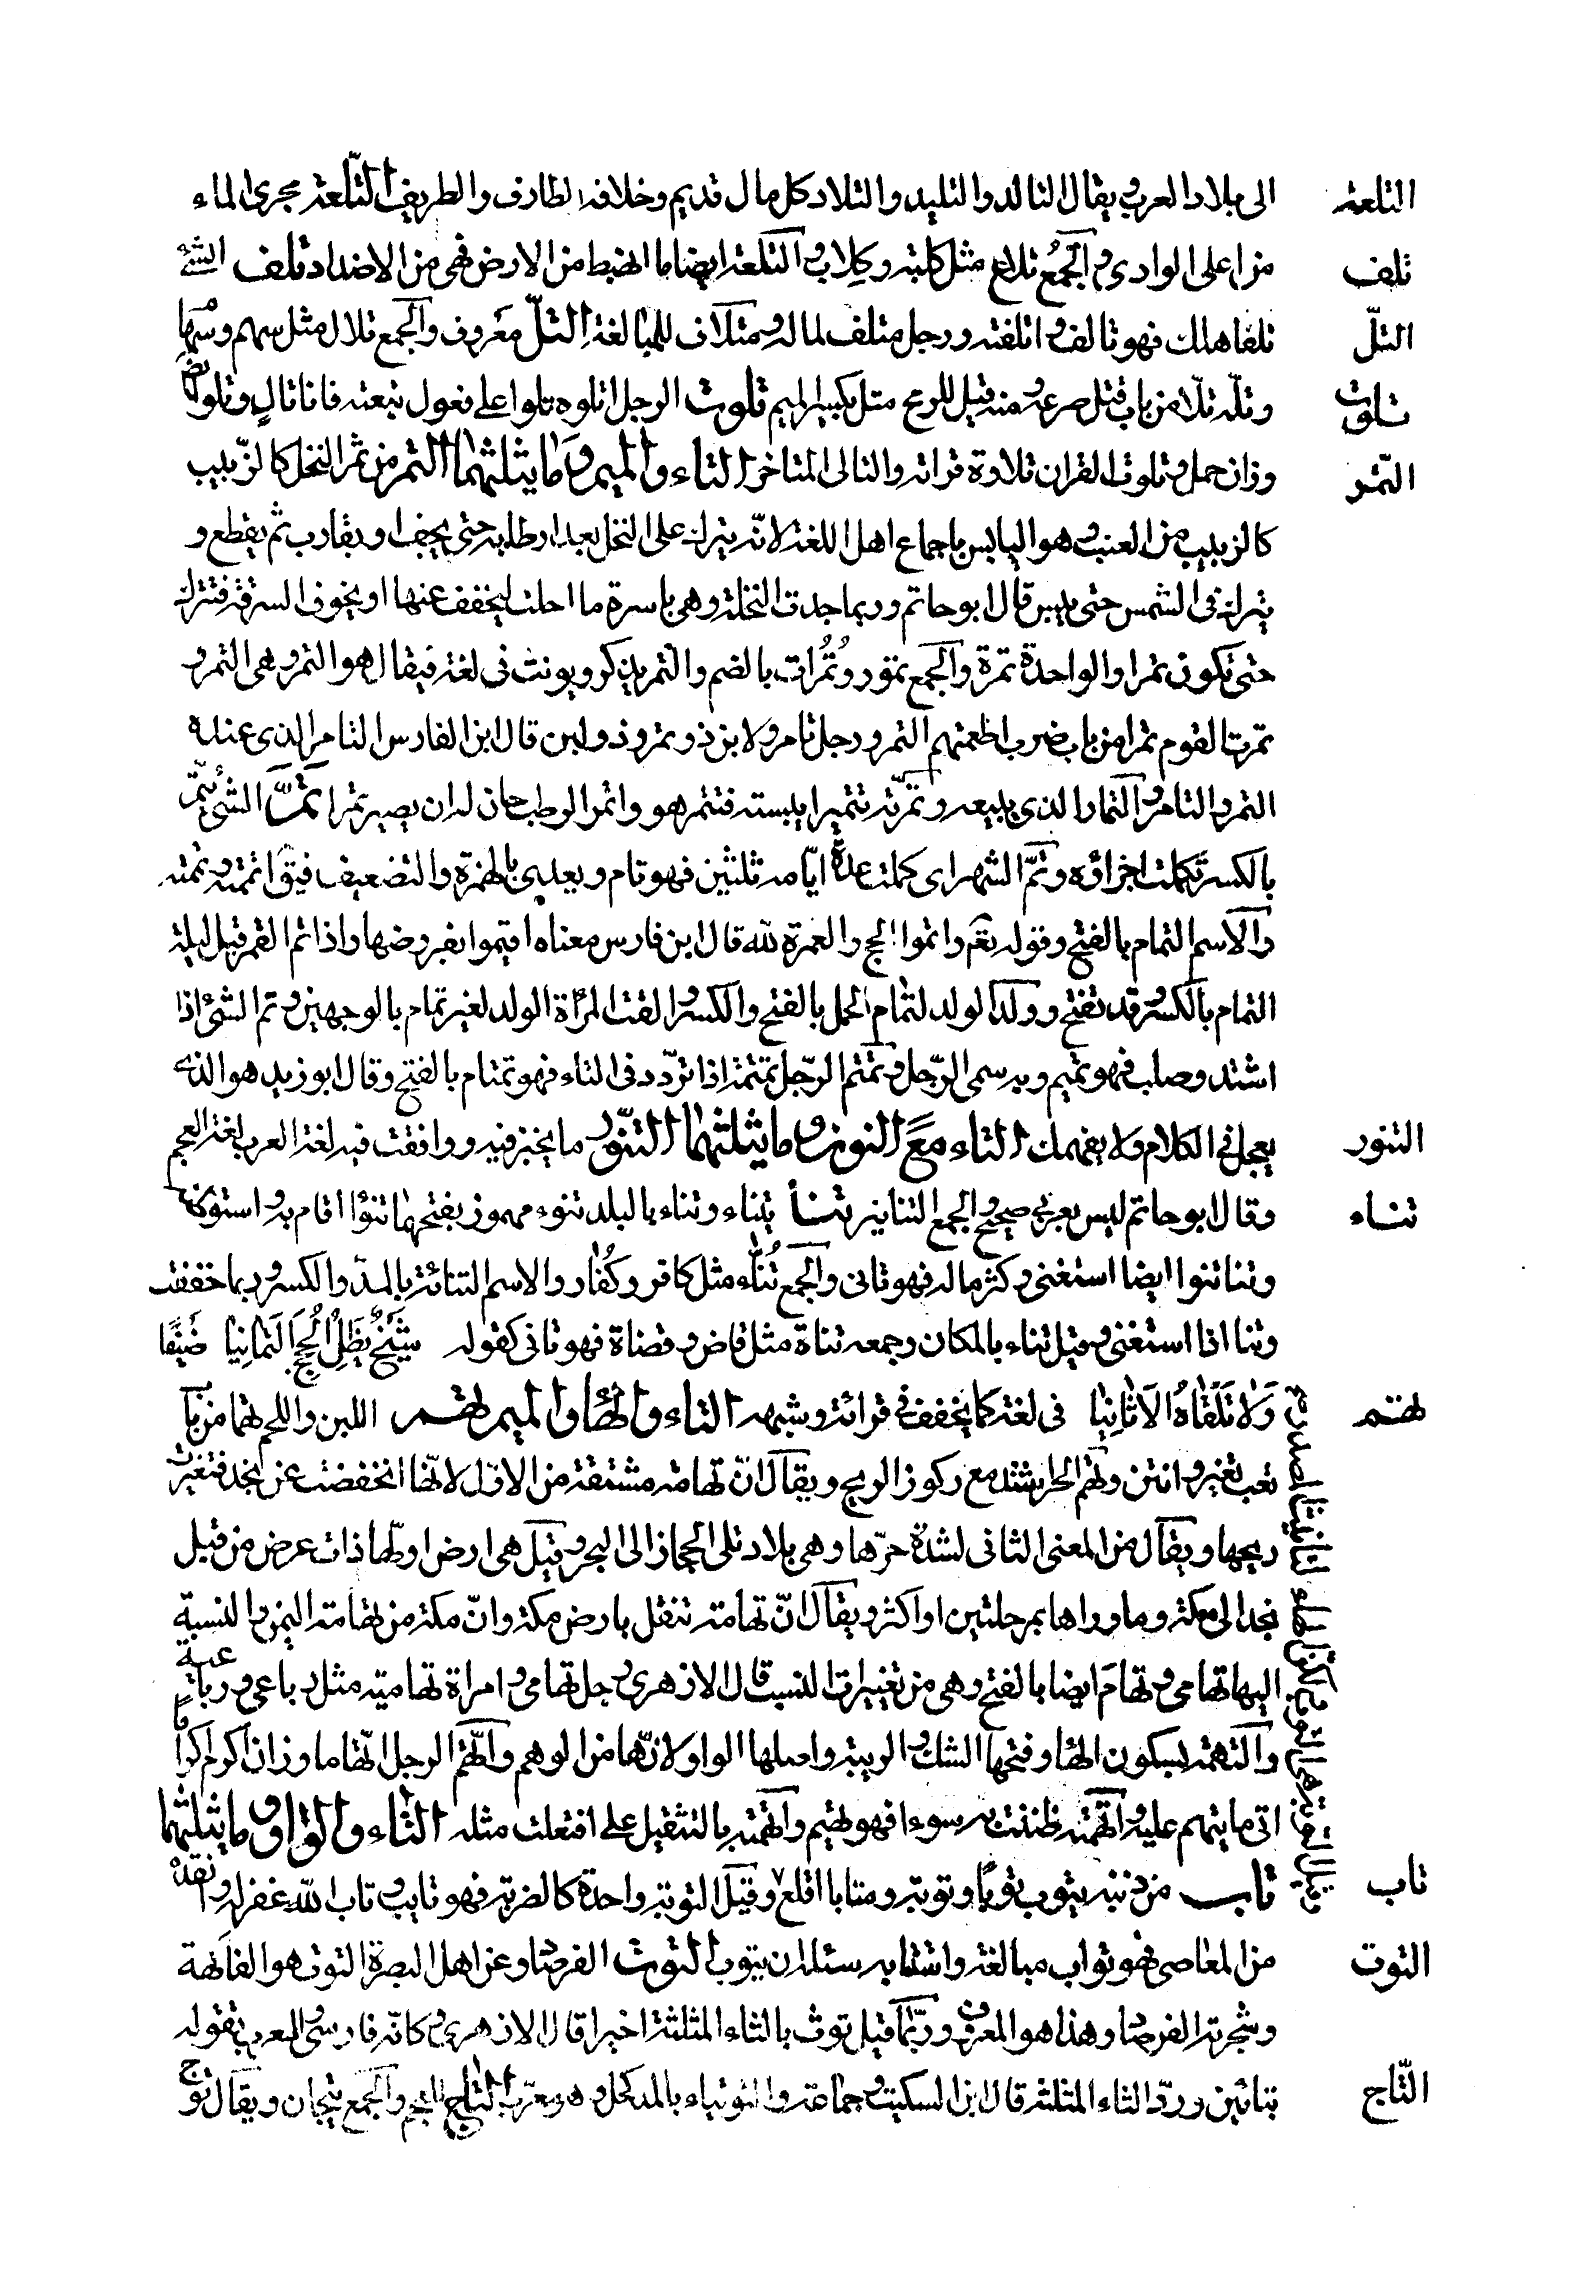 التلعة
الى بلاد العرب ويقال التالد والتليد والتلاد كل مال قديم وخلافه الطارف والطريف التلعة مجرى الماء
تلف
من اعلى الوادى والجمع تلاع مثل كلبة وكلاب والتلعة ايضا ما انهبط من الارض فهى من الاضداد تلف الشئ
التلّ
تلفا هلك فهو تالف واتلفته ورجل متلف لماله ومتلاف للمبالغة التلّ معروف والجمع تلال مثل سهم وسهام
تلوت
وتلّه تلّا من باب قتل صرعه ومنه قيل للرمح متل بكسر الميم تلوت الرجل اتلوه تلوا على فعول تبعته فانا تالٍ وتلو ايضا
التّمر
وزان حمل وتلوت القران تلاوة قراته والتالى المتاخر التاء والميم وما يثلثهما التمر من ثمر النخل كالزبيب
كالزبيب من العنب وهو اليابس باجماع اهل اللغة لانّه يترك على النخل بعد ارطابه حتى يجف او يقارب ثم يقطع و
يترك فى الشمس حتى ييبس قال ابو حاتم وربما جدت النخلة وهى باسرة ما احلت ليخفف عنها او يخوف السرقة فتترك
حتى تكون تمرا والواحدة تمرة والجمع تمور وتُمُرات بالضم والتمر يذكر ويونث فى لغة فيقال هو التمر وهى التمر و
تمرت القوم تمرا من باب ضرب اطعمتهم التمر ورجل تامر ولابن ذو تمر وذو لبن قال ابن الفارس التامر الذى عنده
التمر والتامر والتمار الذى يبيعه وتمّرته تتميرا يبسته فتتمر هو واتمر الرطب حان له ان يصير تمرا تمّ الشئ يتمّ
بالكسر تكملت اجزاؤه وتمّ الشهر اى كملت عدّة ايّامه ثلثين فهو تام ويعدى بالهمزة والتضعيف فيق اتممته وتممته
والاسم التمام بالفتح وقوله تعم واتموا الحج والعمرة لله قال ابن فارس معناه اقيموا بفروضها واذا تم القمر قيل ليلة
التمام بالكسر وقد تفتح وولد الولد لتمام الحمل بالفتح والكسر والقت المرأة الولد لغير تمام بالوجهين وتم الشئ اذا
اشتد وصلب فهو تميم وبه سمى الرّجل وتمتم الرّجل تمتمة اذا تردّد فى التاء فهو تمتام بالفتح وقال ابو زيد هو الذى
التنور
يعجل فى الكلام ولا يفهمك التاء مع النون وما يثلثهما التنّور ما يخبز فيه ووافقت فيه لغة العرب لغة العجم
تناء
وقال ابو حاتم ليس بعربى صحيح والجمع التنانير تنأ يتناء وتناء بالبلد تنوء مهموز بفتحهما تنوّا اقام به واستوطنه
وتنا تنوا ايضا استغنى وكثر ماله فهو تانى والجمع تُنّاء مثل كافر وكُفّار والاسم التنائة بالمدّ والكسر وربما خففت
وتنا اذا استغنى وقيل تناء بالمكان وجمعه تناة مثل قاض وقضاة فهو تانى كقوله شَيْخٌ يَظَلُّ الحُجَجَ الثَمانِيا ضَيْفًا
تهم
وَلا تَلْقاهُ الّا تانِيا فى لغة كما يخفف فى قرائة وشبهه التاء والهاء والميم تهم اللبن واللحم تهما من باب
تعب تغير وانتن وتهم الحر اشتد مع ركوز الريح ويقال انّ تهامة مشتقة من الاوّل لانّها انخفضت عن نجد فتغيرت
ريحها ويقال من المعنى الثانى لشدّة حرّها وهى بلاد تلى الحجاز الى البحر وقيل هى ارض اولها ذات عرض من قبل
نجد الى مكة وما وراها بمرحلتين او اكثر ويقال انّ تهامة تنقل بارض مكة وانّ مكة من تهامة اليمن والنسبة
اليها تهامى وتهام ايضا بالفتح وهى من تغييرات النسب قال الازهرى رجل تهامى وامراة تهامية مثل رباعى ورباعية
والتهمة بسكون الهاء وفتحها الشك والريبة واصلها الواو لانّها من الوهم واتّهم الرجل اتّهاما وزان اكرم اكراما
اتى ما يتهم عليه واتهمته ظننت به سوءا فهو تهيم واتهمته بالتثقيل على افتعلت مثله التاء والواو وما يثلثهما
تاب
تاب من ذنبه يتوب توبًا وتوبة ومتابا اقلع وقيل التوبة واحدة كالضربة فهو تايب وتاب الله غفر له وانقذه
التوت
من المعاصى فهو تواب مبالغة واستتابه سئله ان يتوب التوت الفرصاد وعن اهل البصرة التوت هو الفاكهة
وشجرته الفرصاد وهذا هو المعروف وربّما قيل توث بالثاء المثلثة اخيرا قال الازهرى وكانّه فارسى والعرب تقوله
التّاج
بتائين وردّ الثاء المثلثة قال ابن السكيت وجماعة والتوتياء بالمد كحل وهو معرّب التاج للعجم والجمع تيجان ويقال توّج